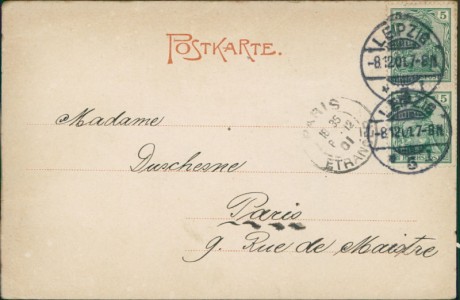 POSTKARTE.
5
LEIPZIG
-8.12.01.7-8N.
5
LEIPZIG
-8.12.01.7-8N.
5
PARIS
18 35
12
01
ETRANGER
Madame
Duschesne
Paris
9. Rue de Maistre